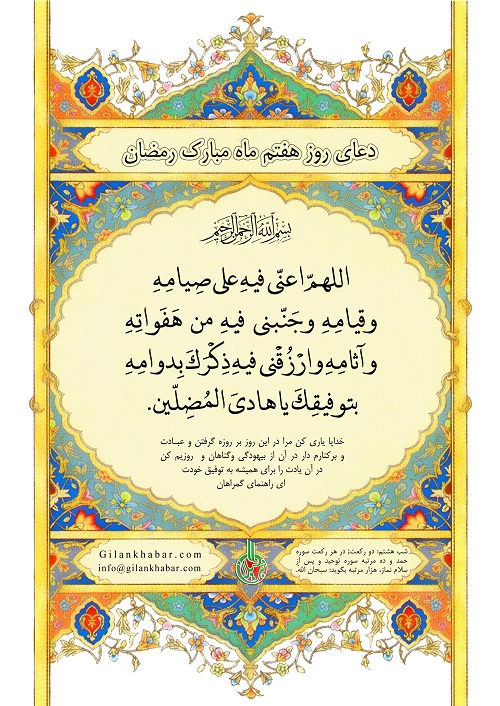 دعای روز هفتم ماه مبارک رمضان
بسم الله الرحمن الرحیم
اللهمّ اعنّی فیهِ علی صِیامِهِ
وقیامِهِ وجَنّبنی فیهِ من هَفَواتِهِ
وآثامِهِ وارْزُقْنی فیهِ ذِكْرَكَ بِدوامِهِ
بتوفیقِكَ یا هادیَ المُضِلّین.
خدایا یاری کن مرا در این روز بر روزه گرفتن و عبادت
و برکنارم دار در آن از بیهودگی وگناهان و روزیم کن
در آن یادت را برای همیشه به توفیق خودت
ای راهنمای گمراهان
Gilankhabar.com
info@gilankhabar.com
شب هشتم: دو رکعت؛ در هر رکعت سوره
حمد و ده مرتبه سوره توحید و پس از
سلام نماز، هزار مرتبه بگوید: سبحان الله.